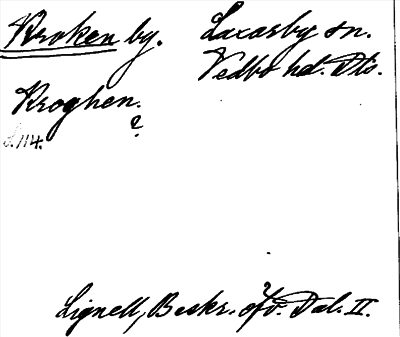 Kroken by. Laxarby sn.
Vedbo hd. Dls.
Kroghen.
?
S. 114.
Lignell, Beskr. öfv. Dal. II.